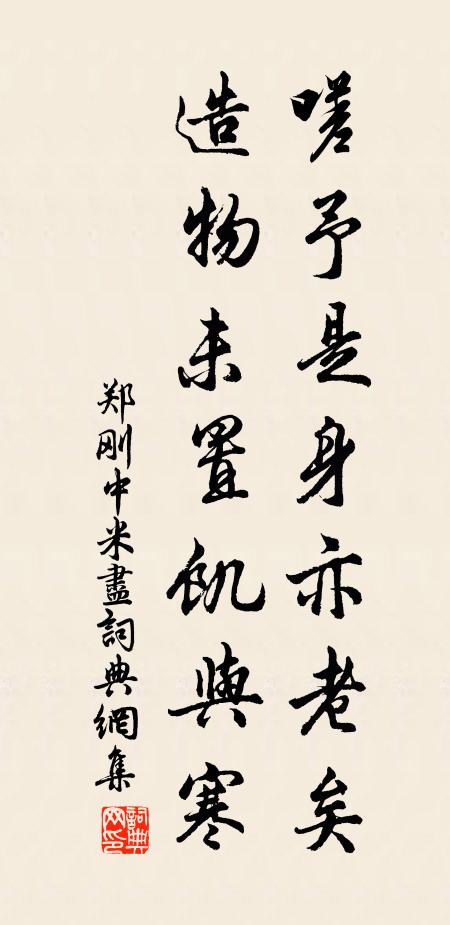 嗟予是身亦老矣
造物未置飢與寒
郑刚中米盡詞典網集
詞典網印